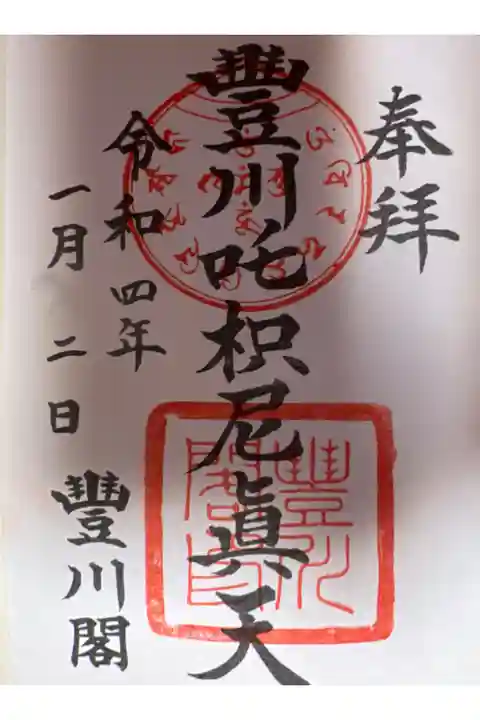 奉拝
豐川吒枳尼眞天
令和四年
一月二日
豐川閣
豐川閣印